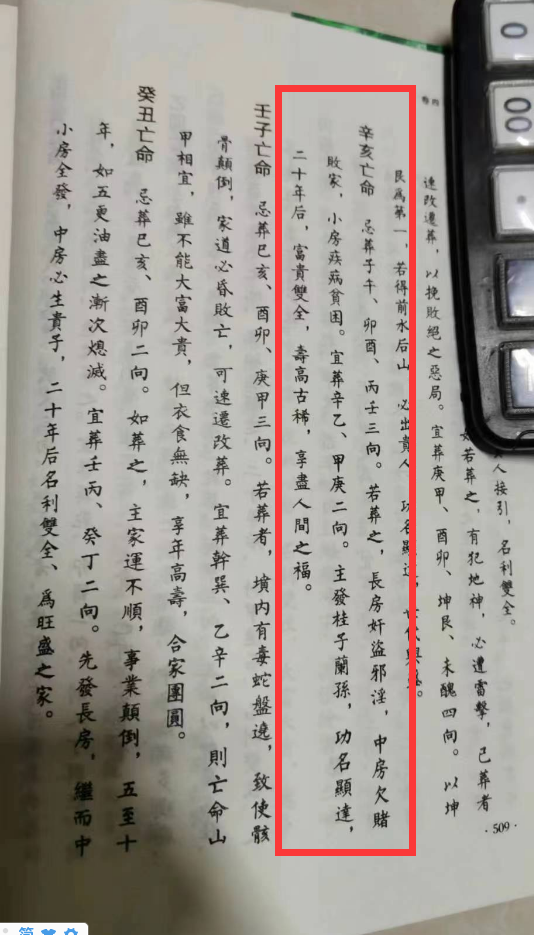 卷四
人接引，名利雙全。
如若葬之，有犯地神，必遭雷擊，已葬者
速改遷葬，以挽敗絕之惡局。宜葬庚甲、酉卯、坤艮、未醜四向。以坤
艮爲第一，若得前水后山，必出貴人，功名顯達，
辛亥亡命　忌葬子午、卯酉、丙壬三向。若葬之，長房奸盜邪淫，中房欠賭
敗家，小房疾病貧困。宜葬辛乙、甲庚二向。主發桂子蘭孫，功名顯達，
二十年后，富貴雙全，壽高古稀，享盡人間之福。
壬子亡命　忌葬巳亥、酉卯、庚甲三向。若葬者，墳内有毒蛇盤遶，致使骸
骨顛倒，家道必昏敗亡，可速遷改葬。宜葬幹巽、乙辛二向，則亡命山
甲相宜，雖不能大富大貴，但衣食無缺，享年高壽，合家團圓。
癸丑亡命　忌葬巳亥、酉卯二向。如葬之，主家運不順，事業顛倒，五至十
年，如五更油盡之漸次熄滅。宜葬壬丙、癸丁二向。先發長房，繼而中
小房全發，中房必生貴子，二十年后名利雙全、爲旺盛之家。
·509·
0
00
简